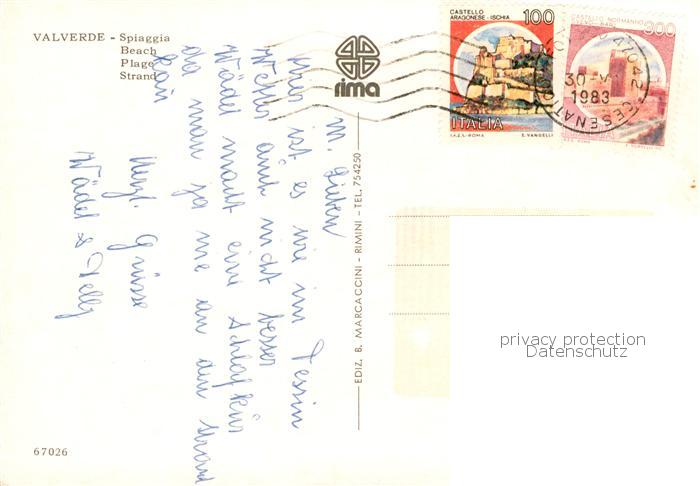 VALVERDE - Spiaggia
Beach
Plage
Strand
rima
100
CASTELLO ARAGONESE - ISCHIA
ITALIA
I.P.Z.S. - ROMA
E. VANGELLI
300
CASTELLO NORMANNO
47042 CESENATICO
30
1983
M. Lieben
Hier ist es wie im Tessin
Wetter auch nicht besser
Wädel macht eine Schlafkur
da man ja nie an den Strand
kan
Herzl. Grüsse
Wädel & Nelly
EDIZ. B. MARCACCINI - RIMINI - TEL. 754250
67026
privacy protection
Datenschutz